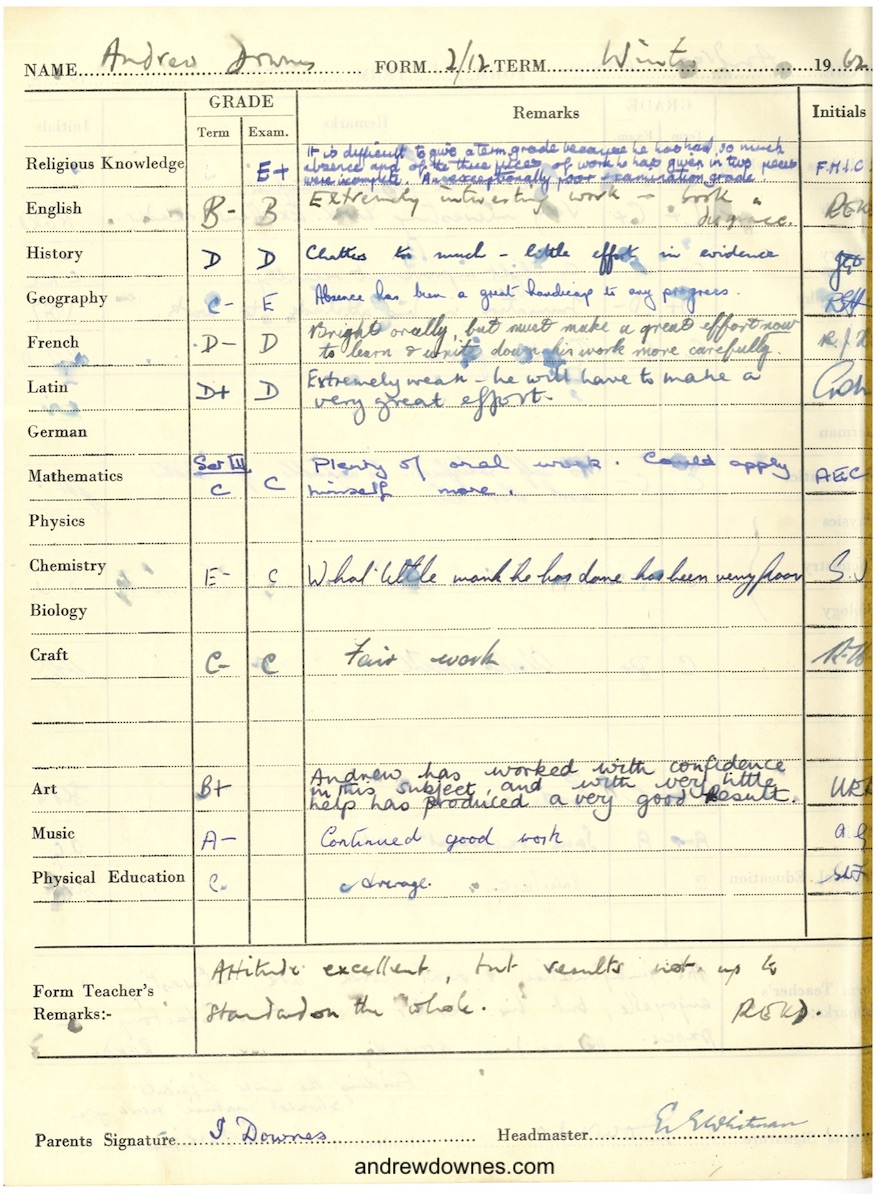 NAME Andrew Downes FORM 2/12 TERM Winter 1962
GRADE
Term Exam. Remarks Initials
Religious Knowledge E+ It is difficult to give a term grade because he has had so much
absence and of the three pieces of work he has given in two pieces
were incomplete. An exceptionally poor examination grade. F.H.I.C
English B- B Extremely interesting work - book a
disgrace. REKD
History D D Chatters too much - little effort in evidence
Geography C- E Absence has been a great handicap to any progress.
French D- D Bright orally, but must make a great effort now
to learn & write down his work more carefully.
Latin D+ D Extremely weak - he will have to make a
very great effort.
German
Mathematics Set III
C C Plenty of oral work. Could apply
himself more. AEC
Physics
Chemistry E- C What little work he has done has been very poor S.J
Biology
Craft C- C Fair work
Art B+ Andrew has worked with confidence
in this subject, and with very little
help has produced a very good Result.
Music A- Continued good work
Physical Education C. Average.
Form Teacher's
Remarks:-
Attitude excellent, but results not up to
standard on the whole. REKD.
Parents Signature I Downes Headmaster E. E. Whitman
andrewdownes.com